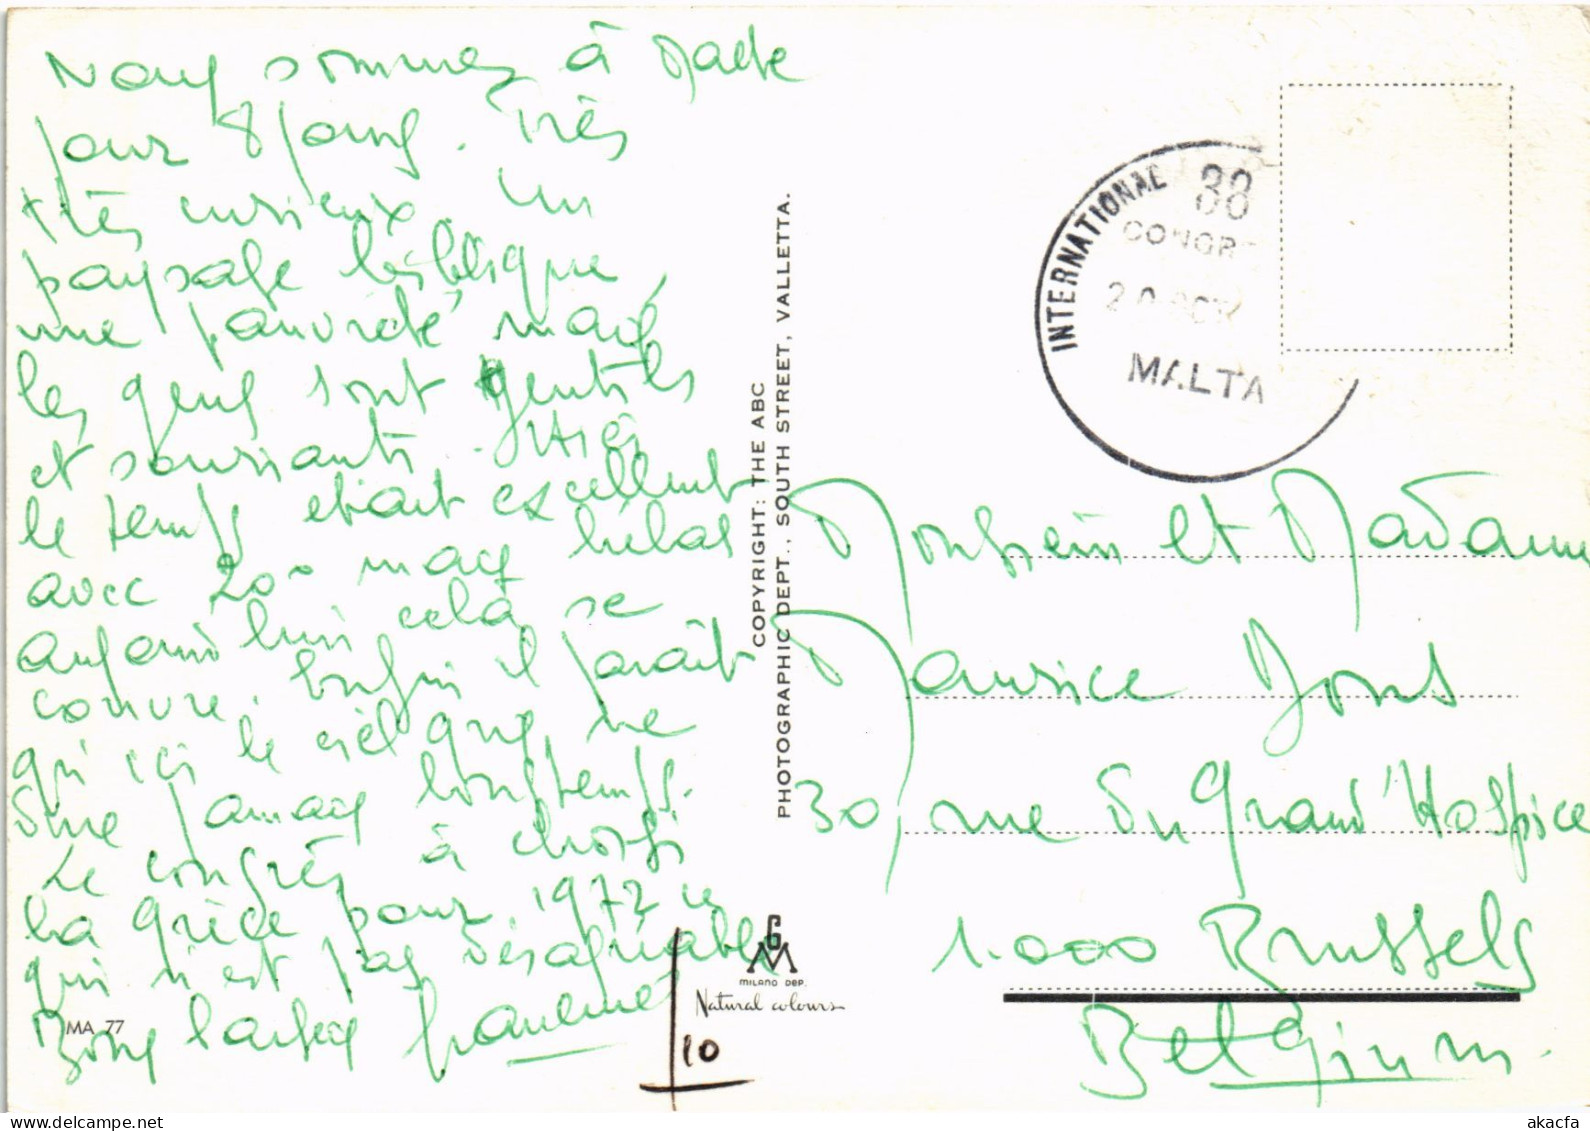 Nous sommes à Malte
pour 8 jours. Très
très curieux. Un
paysage biblique,
une pauvreté mais
les gens sont gentils
et souriants. Hier
le temps était excellent
avec 20° mais hélas
aujourd'hui cela se
couvre. Enfin il paraît
qu'ici le ciel gris ne
dure jamais longtemps.
Le congrès a choisi
la Grèce pour 1972 ce
qui n'est pas désagréable
Bons baisers
MA 77
10
COPYRIGHT: THE ABC
PHOTOGRAPHIC DEPT., SOUTH STREET, VALLETTA.
GM
MILANO DEP.
Natural colours
INTERNATIONAL
38
CONGR
MALTA
Monsieur et Madame
Maurice
30, rue du Grand'Hospice
1.000 Brussels
Belgium.
www.delcampe.net
akacfa